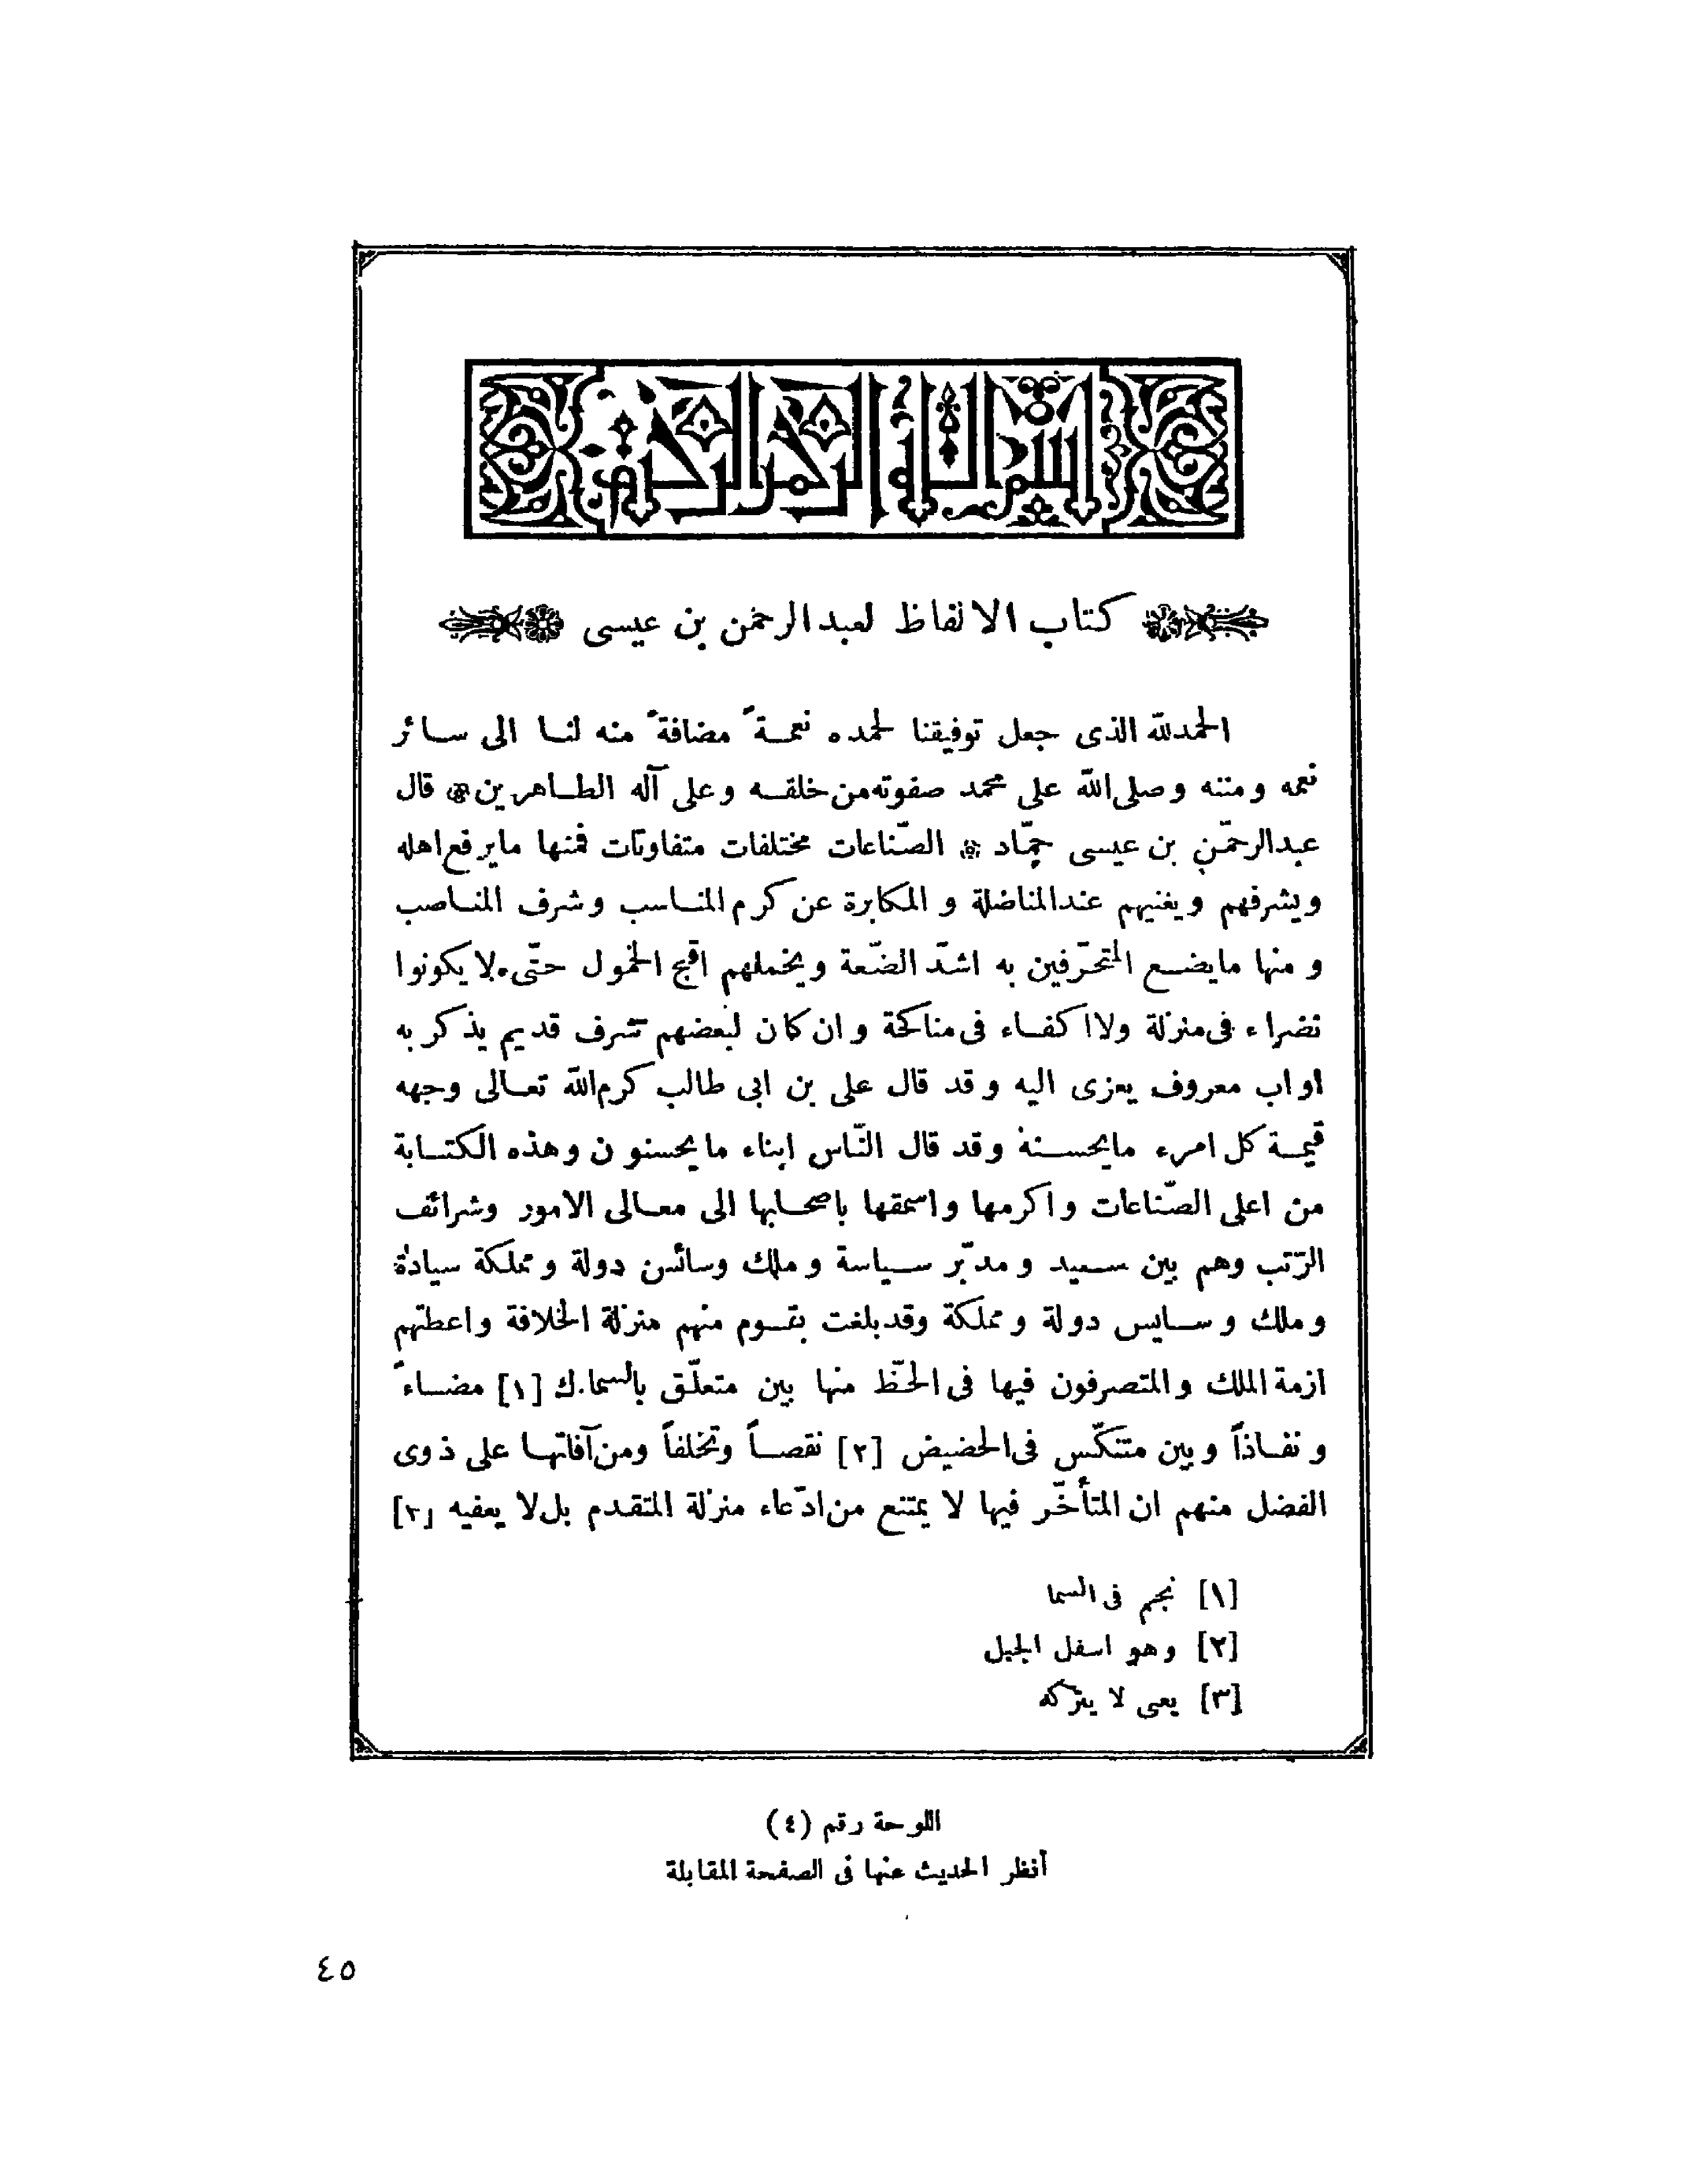 بسم الله الرحمن الرحيم
كتاب الالفاظ لعبدالرحمن بن عيسى
الحمدلله الذى جعل توفيقنا لحمده نعمـةً مضافةً منه لنـا الى سـائر
نعمه ومننه وصلى الله على محمد صفوته من خلقـه وعلى آله الطـاهرين قال
عبدالرحمٰن بن عيسى حمّاد الصّناعات مختلفات متفاوتات فمنها مايرفع اهله
ويشرفهم ويغنيهم عندالمناضلة و المكابرة عن كرم المنـاسب وشرف المنـاصب
و منها مايضـع المتحرّفين به اشدّ الضّعة ويخملهم اقبح الخمول حتّى لا يكونوا
نضراء فى منزلة ولا اكفـاء فى مناكحة و ان كان لبعضهم شرف قديم يذكر به
او اب معروف يعزى اليه وقد قال على بن ابى طالب كرم الله تعـالى وجهه
قيمـة كل امرء مايحسـنه وقد قال النّاس ابناء مايحسنون وهذه الكتـابة
من اعلى الصّناعات واكرمها واسمقها باصحـابها الى معـالى الامور وشرائف
الرّتب وهم بين سـعيد و مدبّر سـياسة وملك وسائس دولة و مملكة سيادة
وملك و سـايس دولة و مملكة وقدبلغت بقـوم منهم منزلة الخلافة واعطتهم
ازمة الملك والمتصرفون فيها فى الحظّ منها بين متعلّق بالسما.ك [١] مضـاءً
و نفـاذاً وبين متنكّس فى الحضيض [٢] نقصـاً وتخلفاً ومن آفاتهـا على ذوى
الفضل منهم ان المتأخّر فيها لا يمتنع من ادّعاء منزلة المتقدم بل لا يعفيه [٣]
[١] نجم فى السما
[٢] وهو اسفل الجبل
[٣] يعى لا يتركه
اللوحة رقم (٤)
أنظر الحديث عنها فى الصفحة المقابلة
٤٥